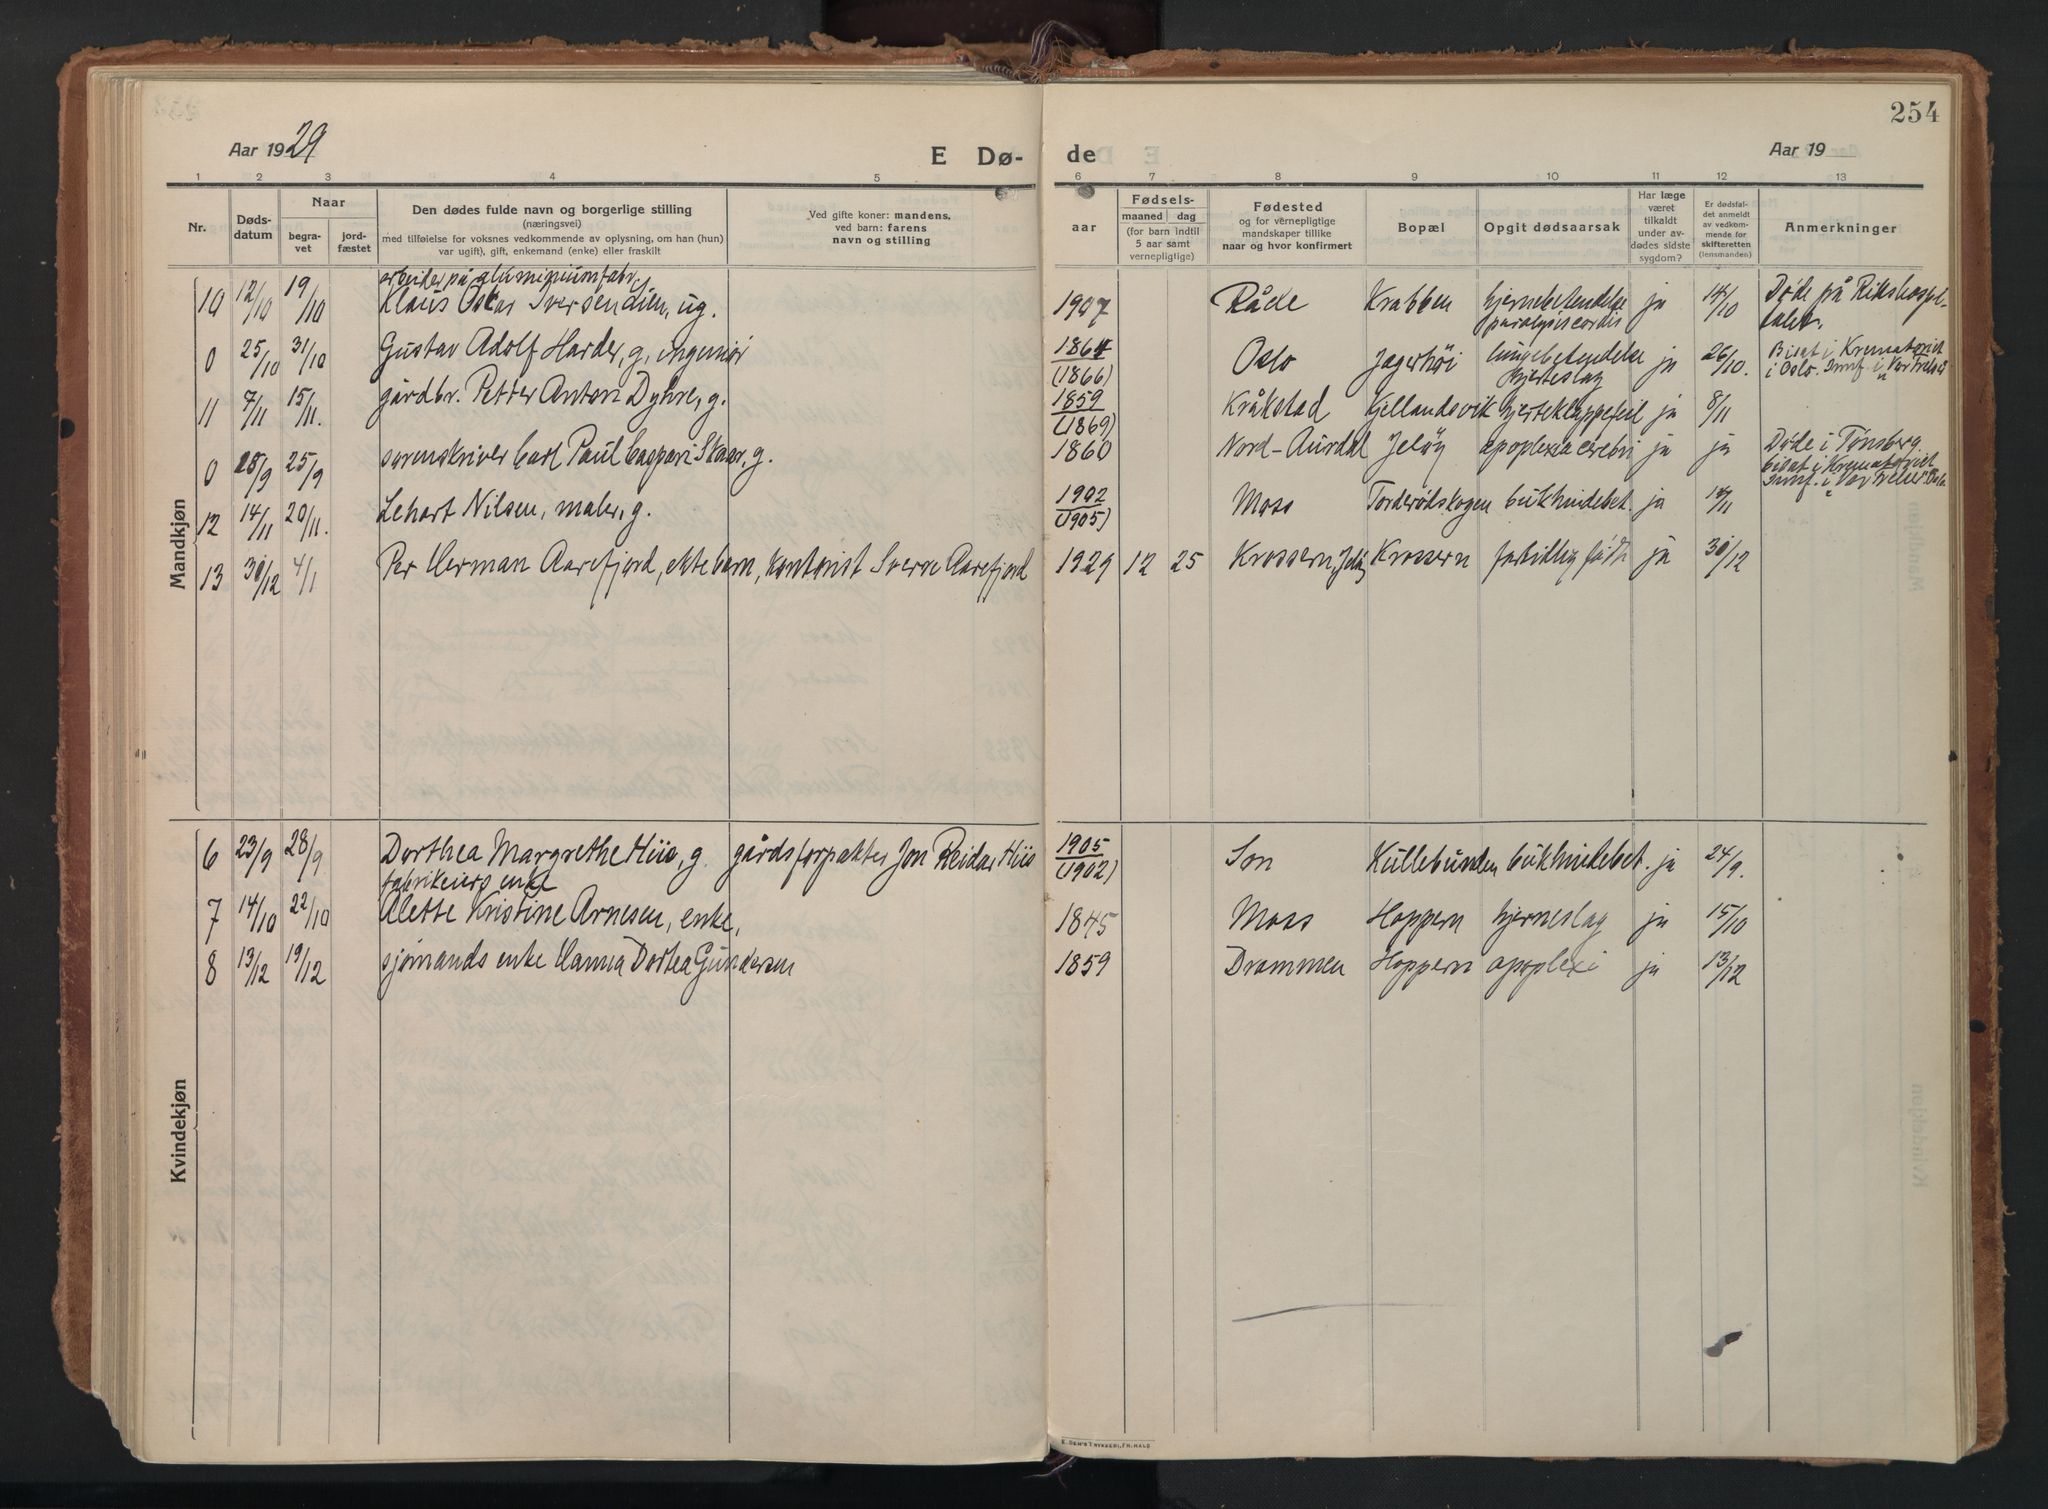 254
Aar 1929
E Dø-
de
Aar 19
1 2 3 4 5 6 7 8 9 10 11 12 13
Nr.
Døds-
datum
Naar
begra-
vet
jord-
fæstet
Den dødes fulde navn og borgerlige stilling
(næringsvei)
med tilføielse for voksnes vedkommende av oplysning, om han (hun)
var ugift), gift, enkemand (enke) eller fraskilt
Ved gifte koner: mandens,
ved barn: farens
navn og stilling
aar
Fødsels-
maaned dag
(for barn indtil
5 aar samt
vernepligtige)
Fødested
og for vernepligtige
mandskaper tillike
naar og hvor konfirmert
Bopæl
Opgit dødsaarsak
Har læge
været
tilkaldt
under av-
dødes sidste
sygdom?
Er dødsfal-
det anmeldt
av vedkom-
mende for
skifteretten
(lensmanden)
Anmerkninger
Mandkjøn
arbeider på aluminiumfabr.
10 12/10 19/10 Klaus Oskar Iversen Lien, ug. 1907 Råde Krabben hjernebetendelse paralysis cordis ja 14/10 Døde på Rikshospi-
talet.
0 25/10 31/10 Gustav Adolf Harder, g, ingeniør 1864 (1866) Oslo Jagerhøi lungebetendelse hjerteslag ja 26/10. Bisat i Krematoriet
i Oslo. Innf. i "Vor Frelser
11 7/11 15/11. gårdbr. Petter Anton Dyhre, g. 1859 (1869) Kråkstad Kjellandsvik hjerteklappefeil ja 8/11
0 18/9 25/9 sorenskriver Carl Paul Caspari Skaar, g. 1860 Nord-Aurdal Jeløy apoplexia cerebri ja ja Døde i Tønsberg
bisat i Krematoriet
Innf. i "Vor Frelser" Oslo
12 14/11 20/11. Lehart Nilsen, maler, g. 1902 (1905) Moss Torderødskogen bukhindebet. ja 14/11
13 30/12 4/1 Per Herman Aarefjord, ektebarn, kontorist Sverre Aarefjord 1929 12 25 Krossern, Jeløy Krossern fortidlig født ja 30/12
Kvindekjøn
6 23/9 28/9 Dorthea Margrethe Hiis, g. gårdsforpakter Jon Reidar Hiis 1905 (1902) Son Kullebunden bukhindebet. ja 24/9.
fabrikeiers enke
7 14/10 22/10 Alette Kristine Arnesen, enke, 1845 Moss Hoppern hjerneslag ja 15/10
8 13/12 19/12 sjømands enke Hanna Dorthea Gundersen 1859 Drammen Hoppern apoplexi ja 13/12
E. SEM'S TRYKKERI, FR.HALD